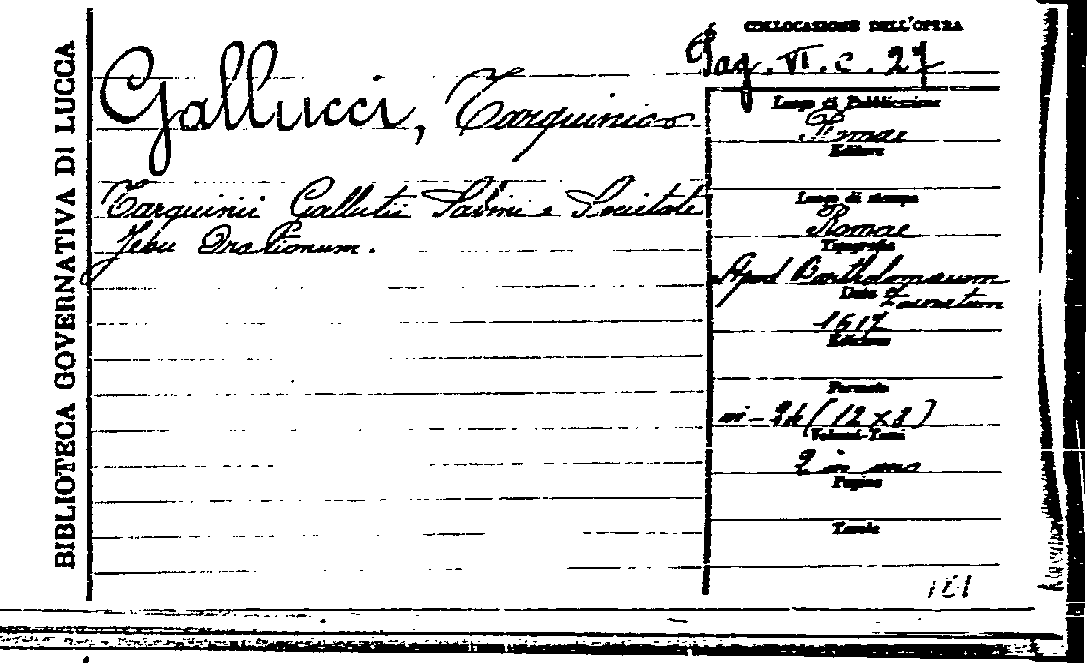 BIBLIOTECA GOVERNATIVA DI LUCCA
Gallucci, Tarquinio
Tarquinii Gallutii Sabini e Societate
Jesu Orationum.
COLLOCAZIONE DELL'OPERA
Pag. VI. c. 27
Luogo di Pubblicazione
Romae
Editore
Luogo di stampa
Romae
Tipografia
Apud Bartholomaeum
Data Zannetum
1617
Edizione
Formato
in-24 (12 x 8)
Volumi-Tomi
2 in uno
Pagine
Tavole
181